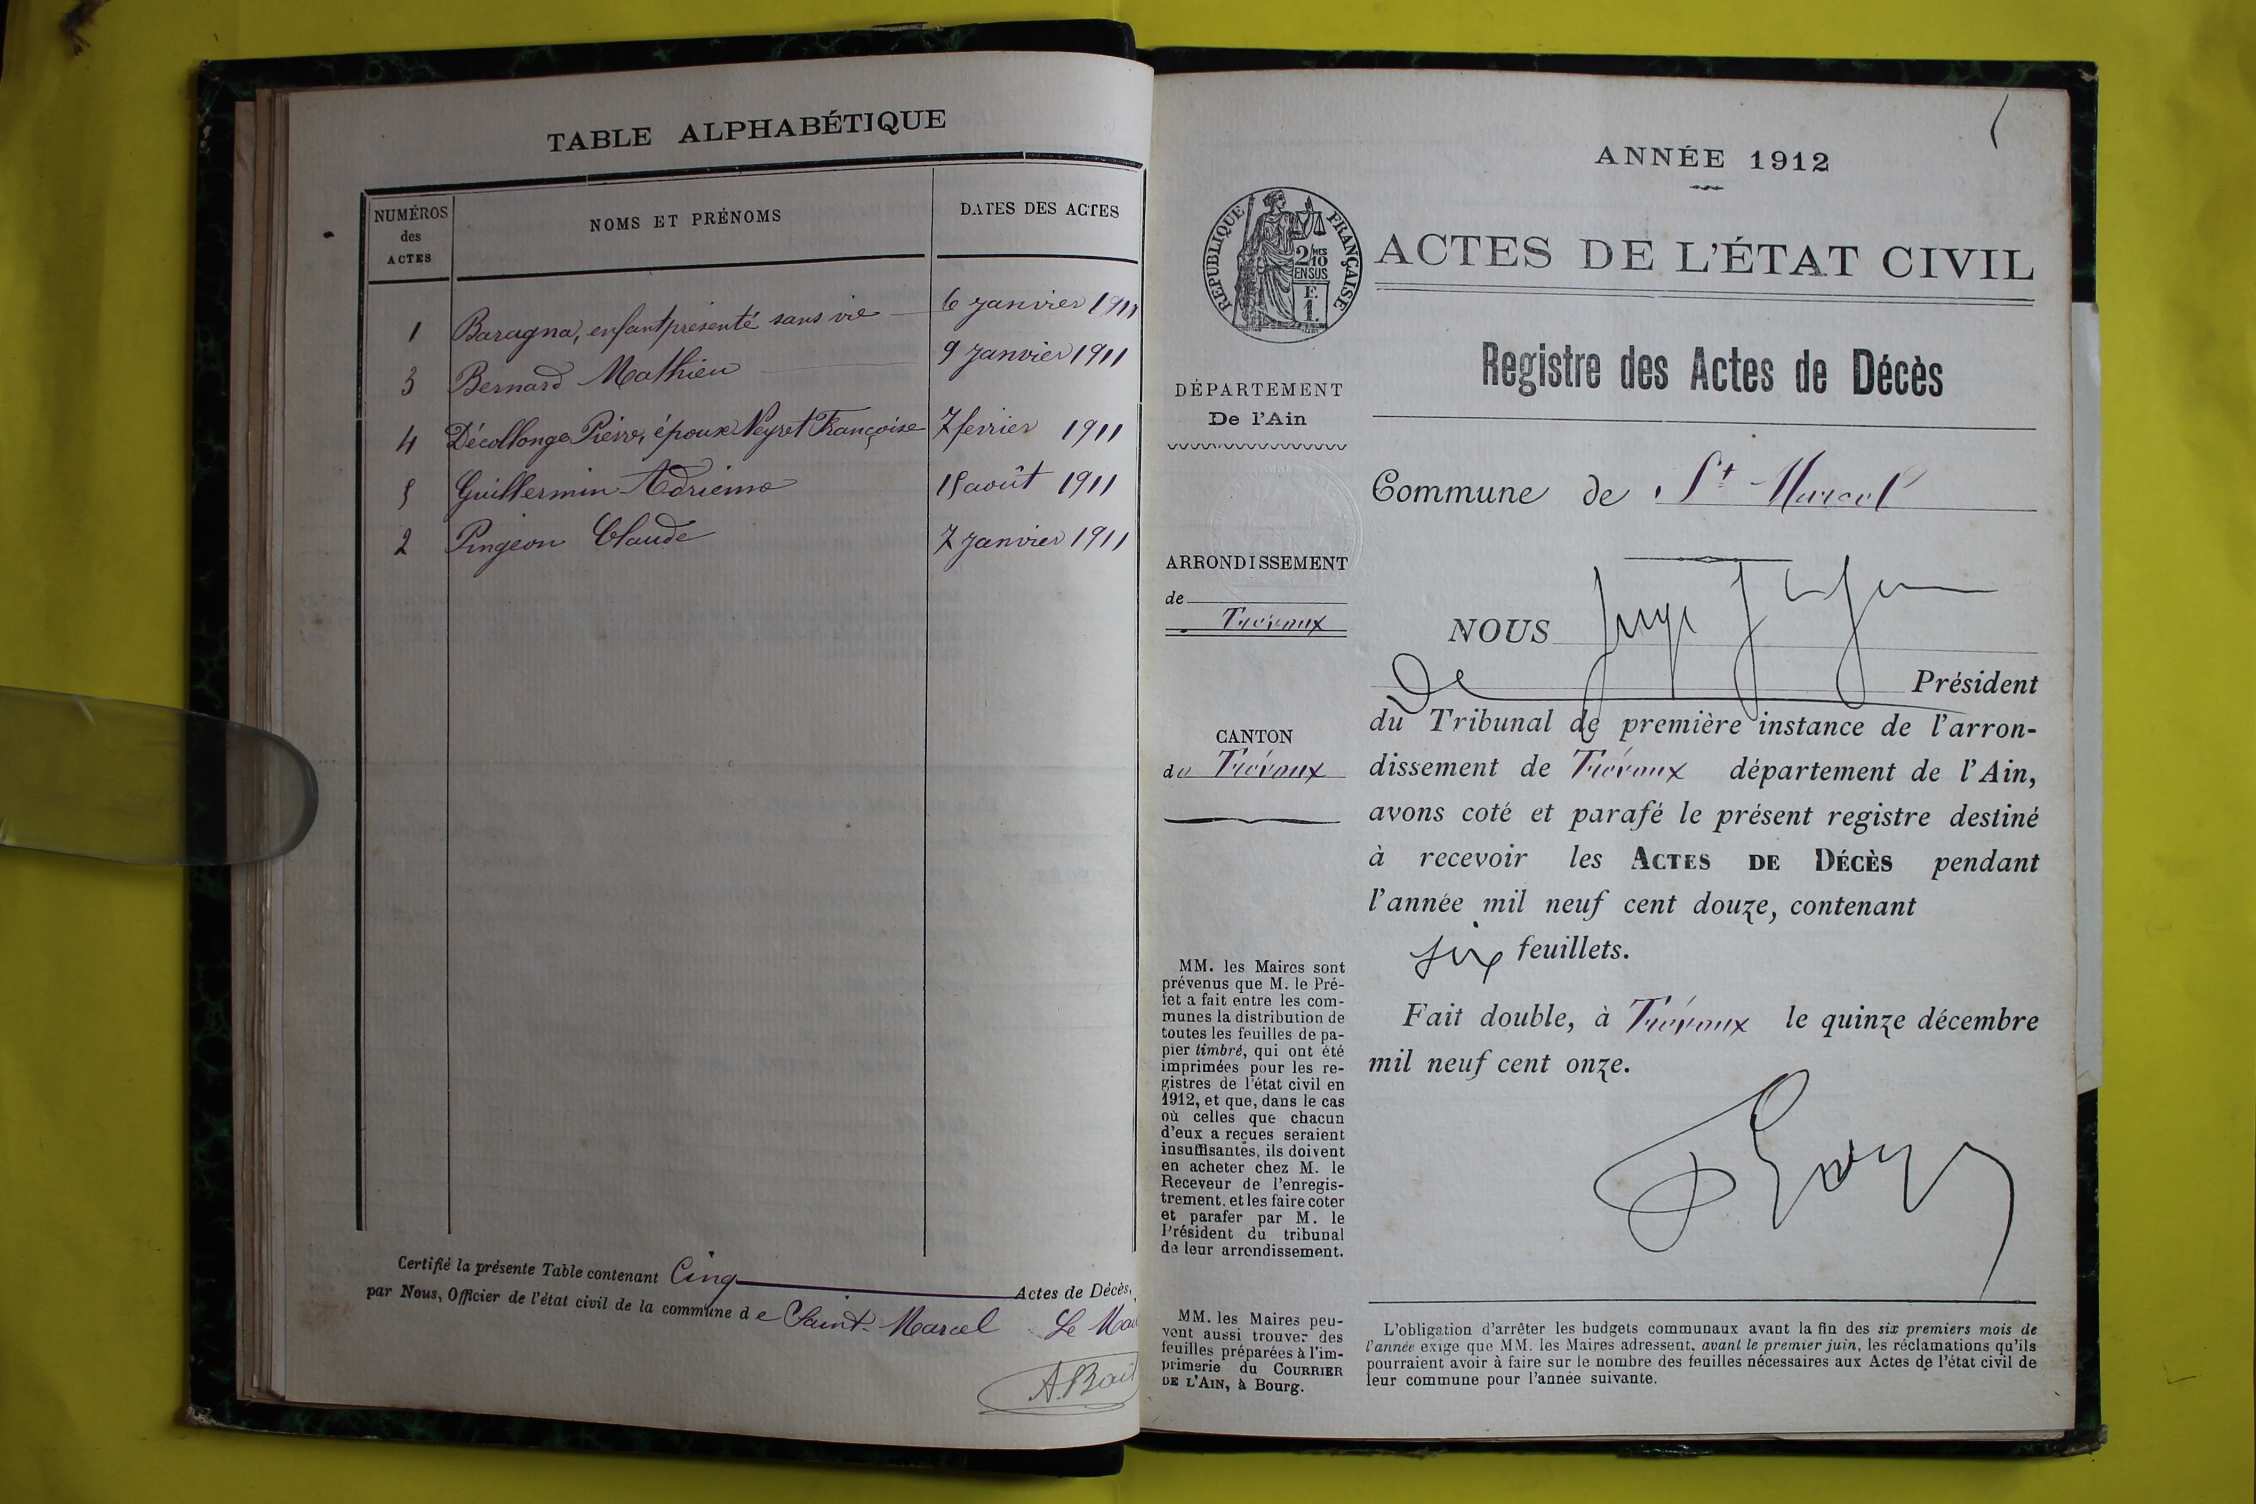 TABLE ALPHABÉTIQUE
NUMÉROS des ACTES
NOMS ET PRÉNOMS
DATES DES ACTES
1 Baragna, enfant présenté sans vie 6 janvier 1911
3 Bernard Mathieu 9 janvier 1911
4 Décollonge Pierre, époux Neyret Françoise 7 février 1911
5 Guillermin Adrienne 15 août 1911
2 Pingeon Claude 7 janvier 1911
Certifié la présente Table contenant Cinq Actes de Décès,
par Nous, Officier de l'état civil de la commune de Saint-Marcel Le Mai
ANNÉE 1912
RÉPUBLIQUE FRANÇAISE
2/10MES
EN SUS
F.
1.
ACTES DE L'ÉTAT CIVIL
Registre des Actes de Décès
DÉPARTEMENT
De l'Ain
ARRONDISSEMENT
de
Trévoux
CANTON
de Trévoux
MM. les Maires sont
prévenus que M. le Pré-
fet a fait entre les com-
munes la distribution de
toutes les feuilles de pa-
pier timbré, qui ont été
imprimées pour les re-
gistres de l'état civil en
1912, et que, dans le cas
où celles que chacun
d'eux a reçues seraient
insuffisantes, ils doivent
en acheter chez M. le
Receveur de l'enregis-
trement, et les faire coter
et parafer par M. le
Président du tribunal
de leur arrondissement.
MM. les Maires peu-
vent aussi trouver des
feuilles préparées à l'im-
primerie du COURRIER
DE L'AIN, à Bourg.
Commune de St Marcel
NOUS Juge
De Président
du Tribunal de première instance de l'arron-
dissement de Trévoux département de l'Ain,
avons coté et parafé le présent registre destiné
à recevoir les ACTES DE DÉCÈS pendant
l'année mil neuf cent douze, contenant
six feuillets.
Fait double, à Trévoux le quinze décembre
mil neuf cent onze.
L'obligation d'arrêter les budgets communaux avant la fin des six premiers mois de
l'année exige que MM. les Maires adressent, avant le premier juin, les réclamations qu'ils
pourraient avoir à faire sur le nombre des feuilles nécessaires aux Actes de l'état civil de
leur commune pour l'année suivante.